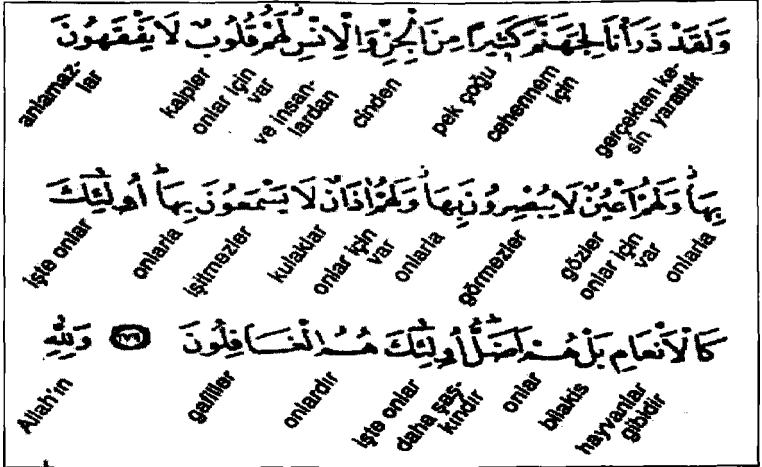 وَلَقَدْ ذَرَأْنَا لِجَهَنَّمَ كَثِيرًا مِنَ الْجِنِّ وَالْاِنْسِ لَهُمْ قُلُوبٌ لَا يَفْقَهُونَ
gerçekten kesin yarattık
cehennem için
pek çoğu
cinden
ve insanlardan
onlar için var
kalpler
anlamazlar
بِهَا وَلَهُمْ اَعْيُنٌ لَا يُبْصِرُونَ بِهَا وَلَهُمْ اٰذَانٌ لَا يَسْمَعُونَ بِهَا اُولٰٓئِكَ
onlarla
onlar için var
gözler
görmezler
onlarla
onlar için var
kulaklar
işitmezler
onlarla
işte onlar
كَالْاَنْعَامِ بَلْ هُمْ اَضَلُّ اُولٰٓئِكَ هُمُ الْغَافِلُونَ وَلِلّٰهِ
hayvanlar gibidir
bilakis
onlar
daha şaşkındır
işte onlar
onlardır
gafiller
Allah'ın